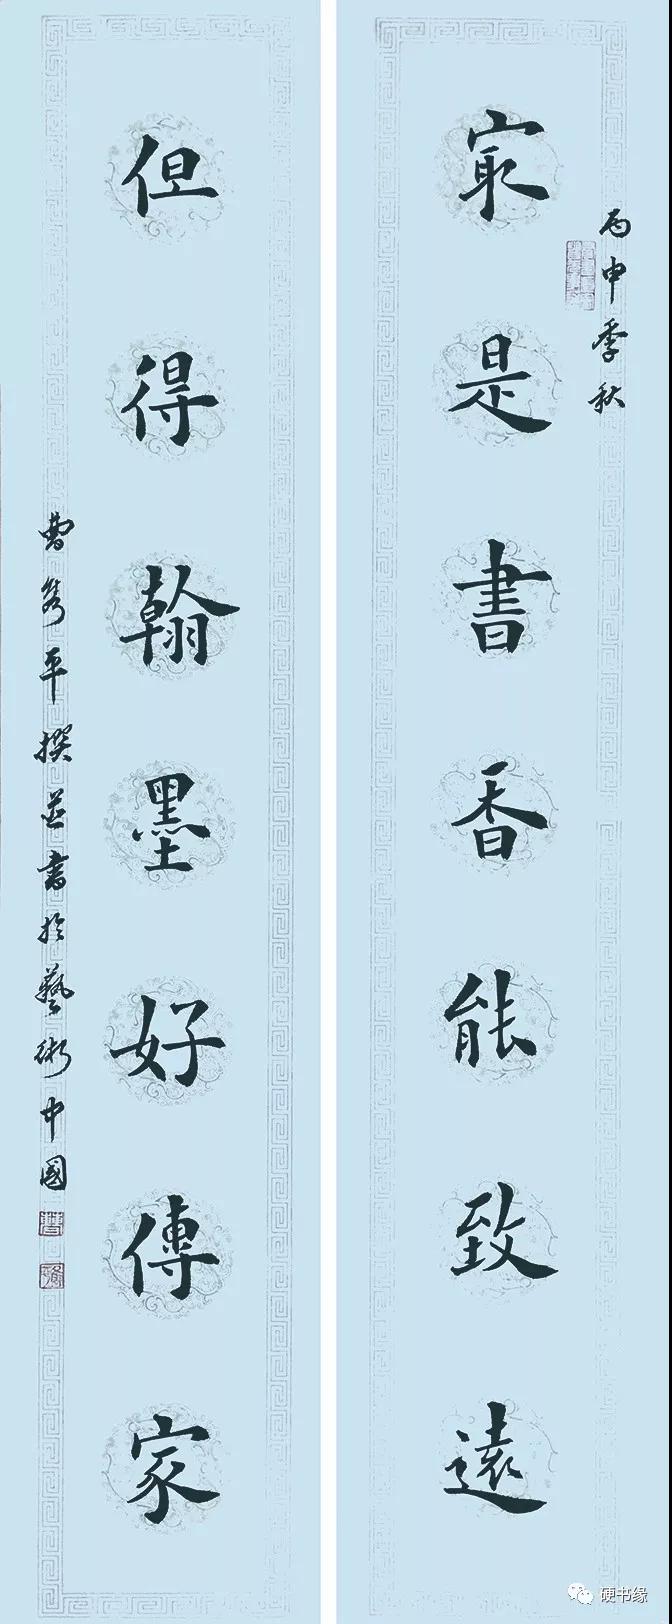 丙申季秋
冣是書香能致遠
但得翰墨好傳家
曹隽平撰并書於藝術中國
硬书缘